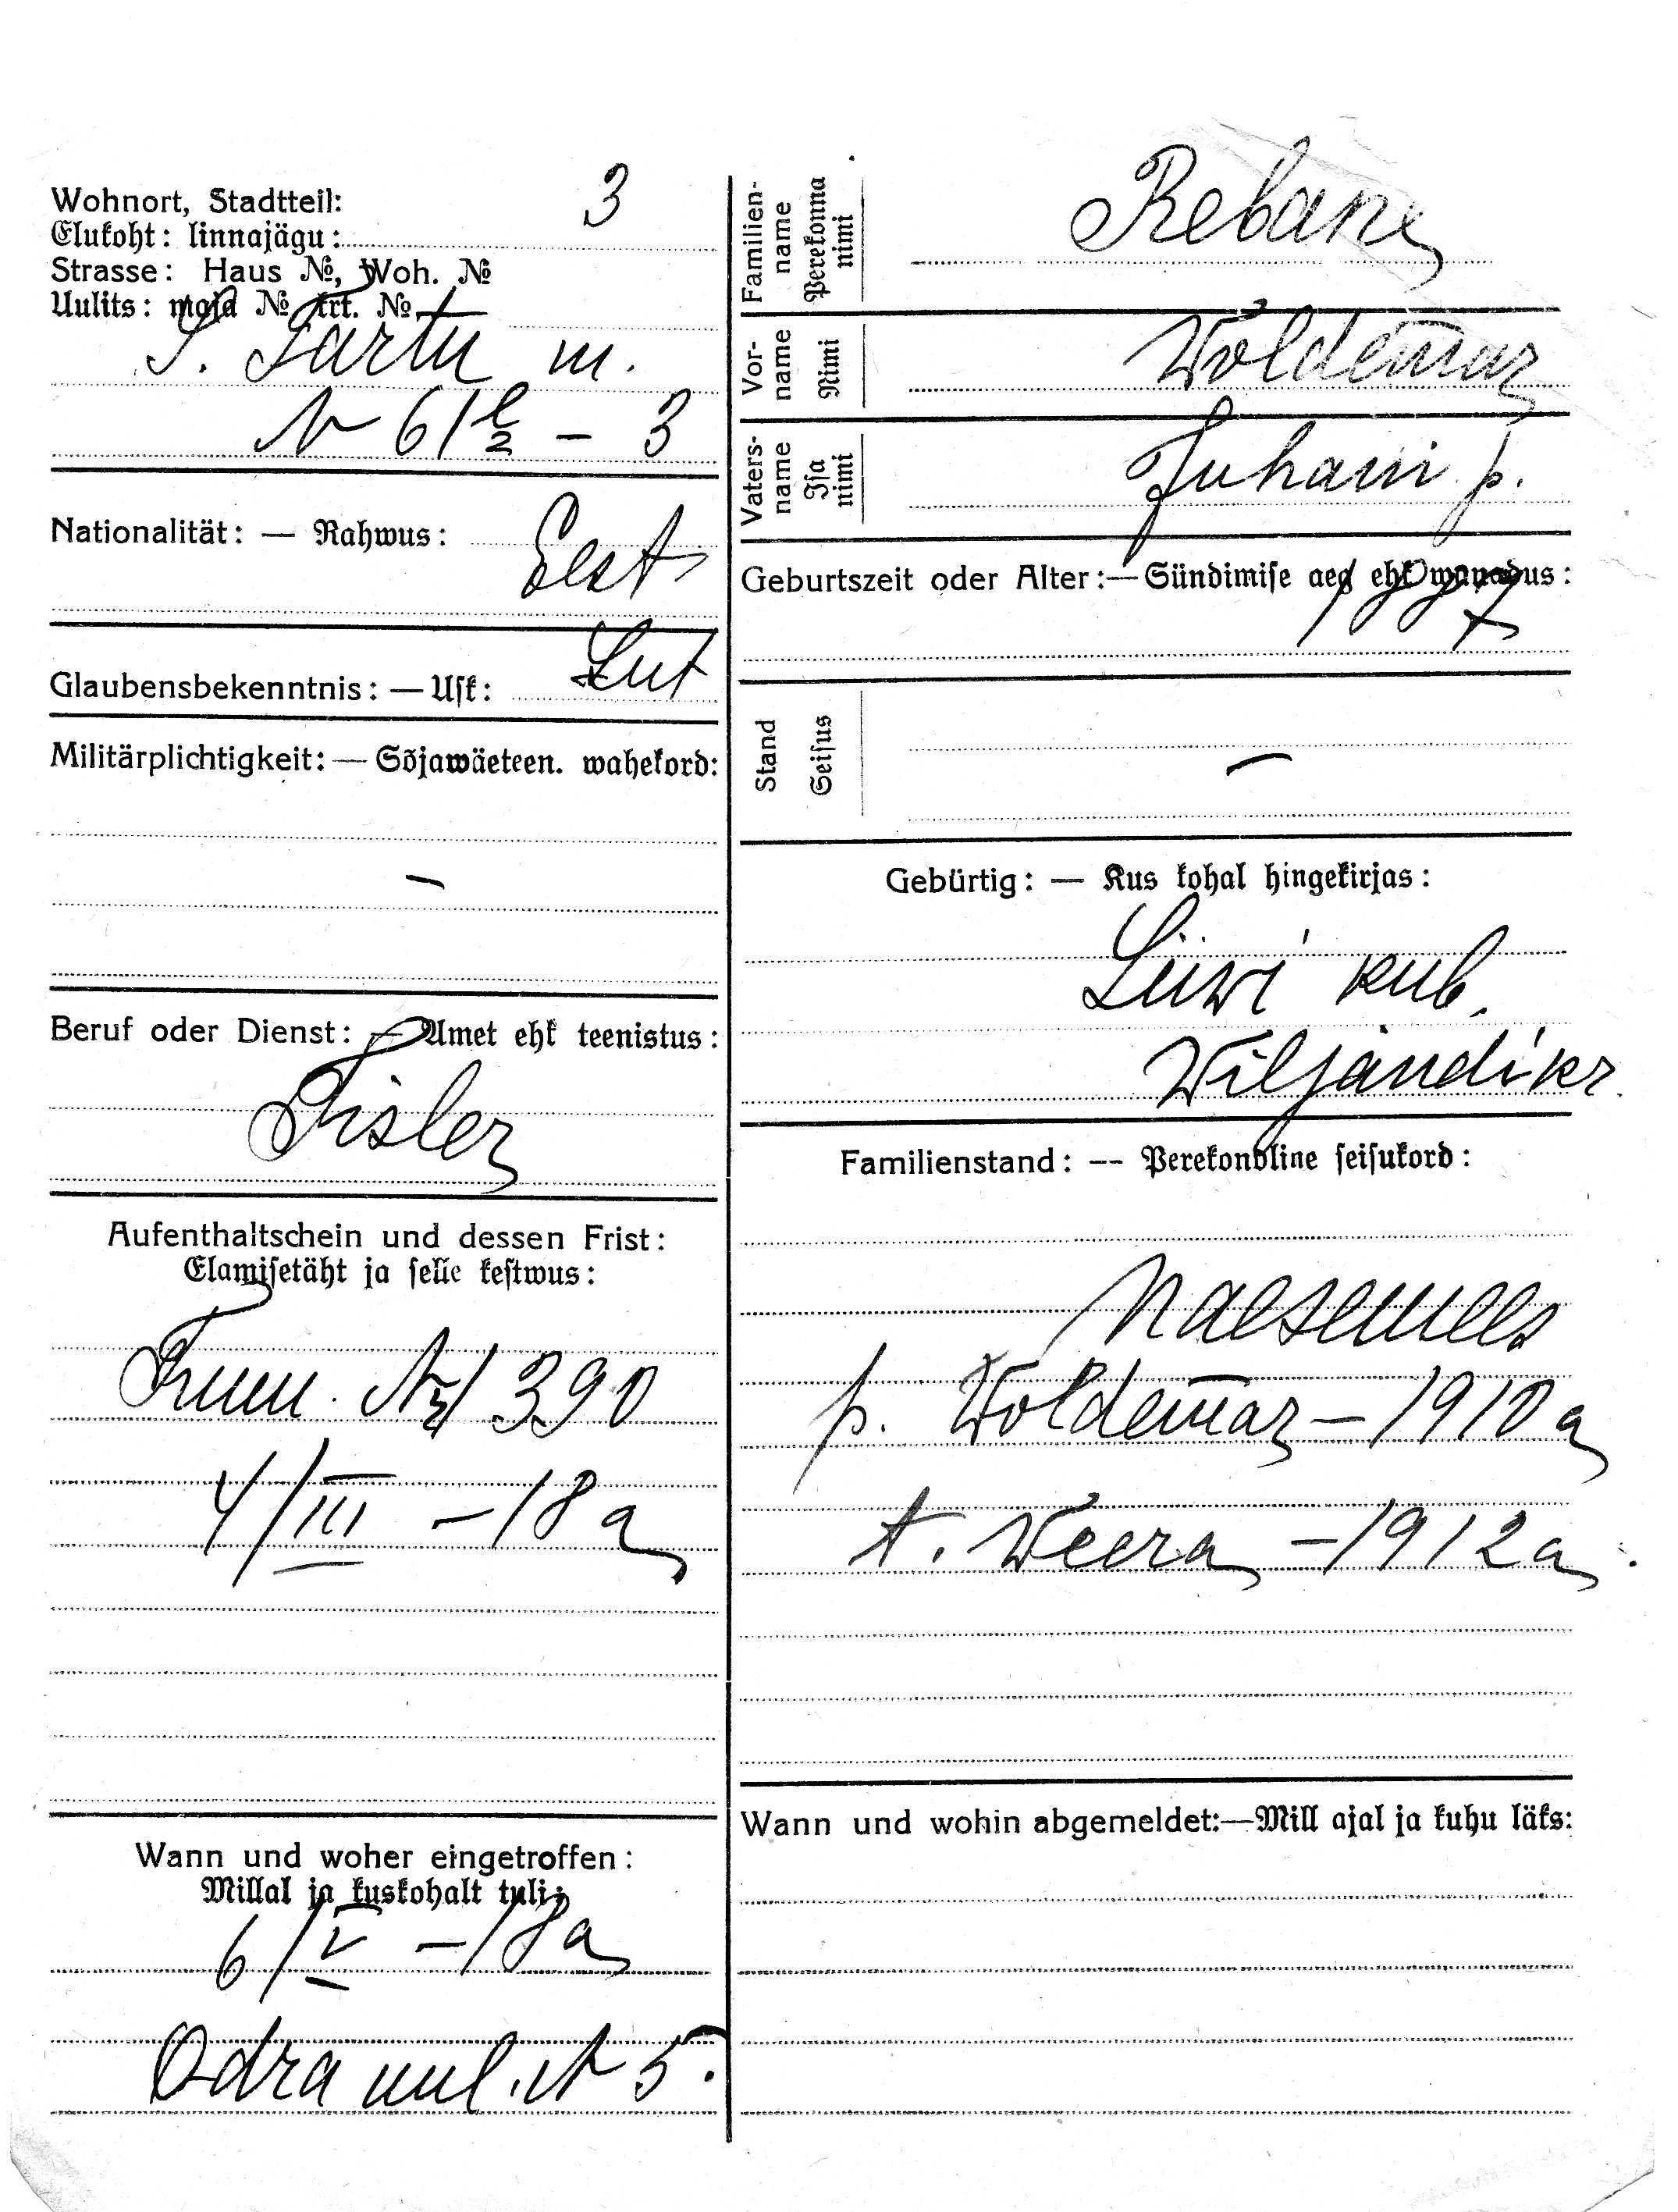 Wohnort, Stadtteil: 3
Elukoht: linnajägu:
Strasse: Haus №, Woh. №
Uulits: maja № krt. №
S. Tartu m.
№ 61 - 3
Nationalität: — Rahwus: Eest
Glaubensbekenntnis: — Usk: Lut
Militärplichtigkeit: — Sõjawäeteen. wahekord:
-
Beruf oder Dienst: — Amet ehk teenistus:
Tisler
Aufenthaltschein und dessen Frist:
Elamisetäht ja selle kestwus:
390
4/III - 18 a
Wann und woher eingetroffen:
Millal ja kuskohalt tuli:
6/V - 18 a
Odra uul. № 5.
Familien-
name
Perekonna
nimi
Rebane
Vor-
name
Nimi
Woldemar
Vaters-
name
Isa
nimi
Juhani p.
Geburtszeit oder Alter: — Sündimise aeg ehk wanadus:
1887
Stand
Seisus
-
Gebürtig: — Kus kohal hingekirjas:
Liiwi kub.
Wiljandi kr.
Familienstand: -- Perekondline seisukord:
Naesemees
p. Woldemar - 1910 a
t. Weera - 1912 a.
Wann und wohin abgemeldet:—Mill ajal ja kuhu läks: